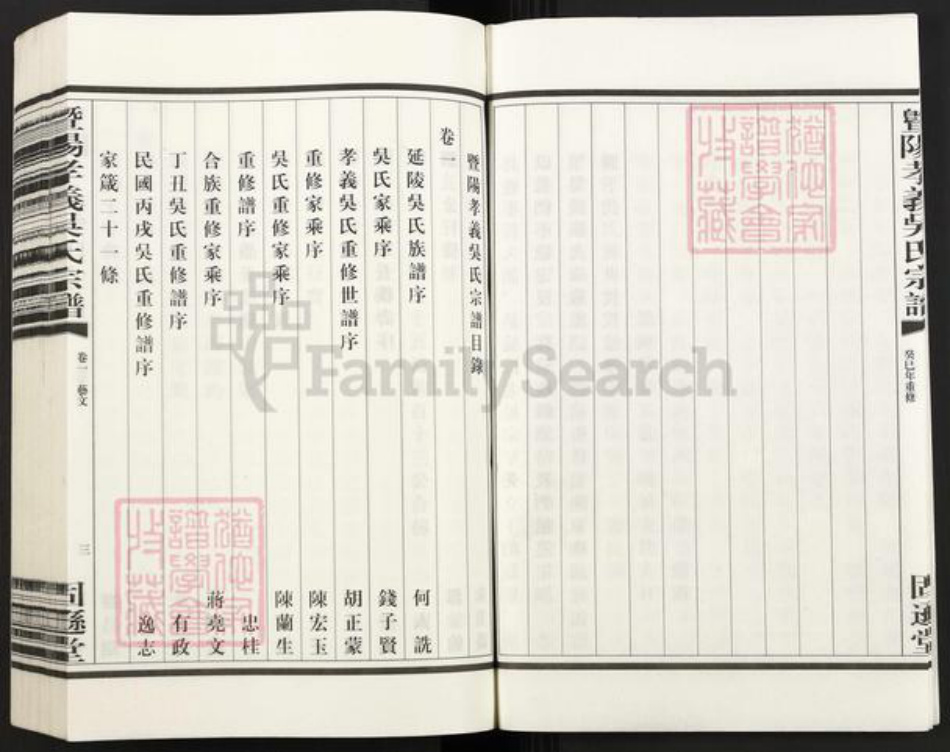 暨陽孝義吳氏宗譜
癸巳年重修
暨陽孝義吳氏宗譜目錄
卷一
延陵吳氏族譜序 何 詵
吳氏家乘序 錢子賢
孝義吳氏重修世譜序 胡正蒙
重修家乘序 陳宏玉
吳氏重修家乘序 陳蘭生
重修譜序 忠桂
合族重修家乘序 蔣堯文
丁丑吳氏重修譜序 有政
民國丙戌吳氏重修譜序 逸志
家箴二十一條
暨陽孝義吳氏宗譜
卷一 藝文
三
譜學會
收藏
譜學會
收藏
FamilySearch